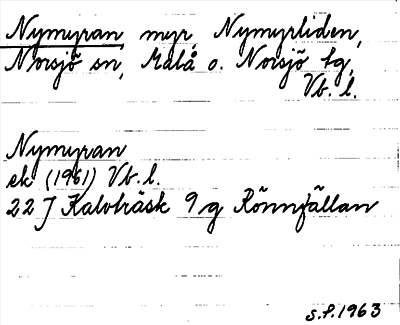 Nymyran, myr, Nymyrliden,
Norsjö sn, Malå o. Norsjö tg,
Vb. l.
Nymyran
ek (1961) Vb. l.
22 J Kalvträsk 9 g Rönnfällan
S.P. 1963